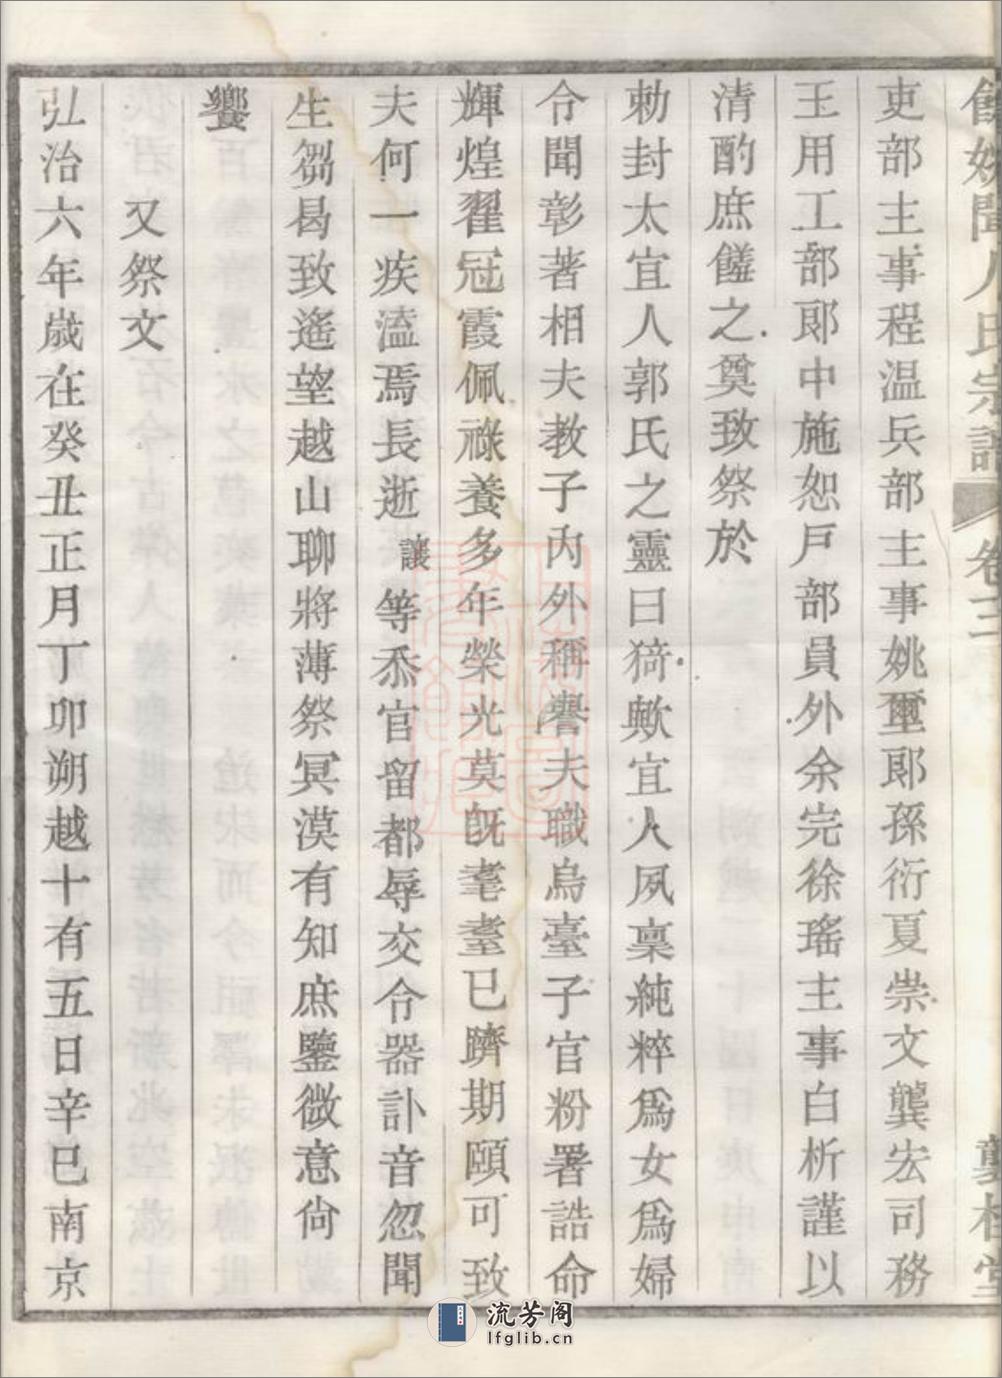 餘姚聞人氏宗譜 卷三
吏部主事程温兵部主事姚璽郎孫衍夏崇文龔宏司務
王用工部郎中施恕戸部員外余完徐瑤主事白析謹以
清酌庶饈之奠致祭於
勅封太宜人郭氏之靈曰猗歟宜人夙稟純粹爲女爲婦
令聞彰著相夫教子內外稱譽夫職烏臺子官粉署誥命
輝煌翟冠霞佩祿養多年榮光莫旣耄耋已躋期頤可致
夫何一疾溘焉長逝讓等忝官留都辱交令器訃音忽聞
生芻曷致遙望越山聊將薄祭冥漠有知庶鑒微意尙
饗
又祭文
弘治六年歲在癸丑正月丁卯朔越十有五日辛巳南京
流芳阁
lfglib.cn